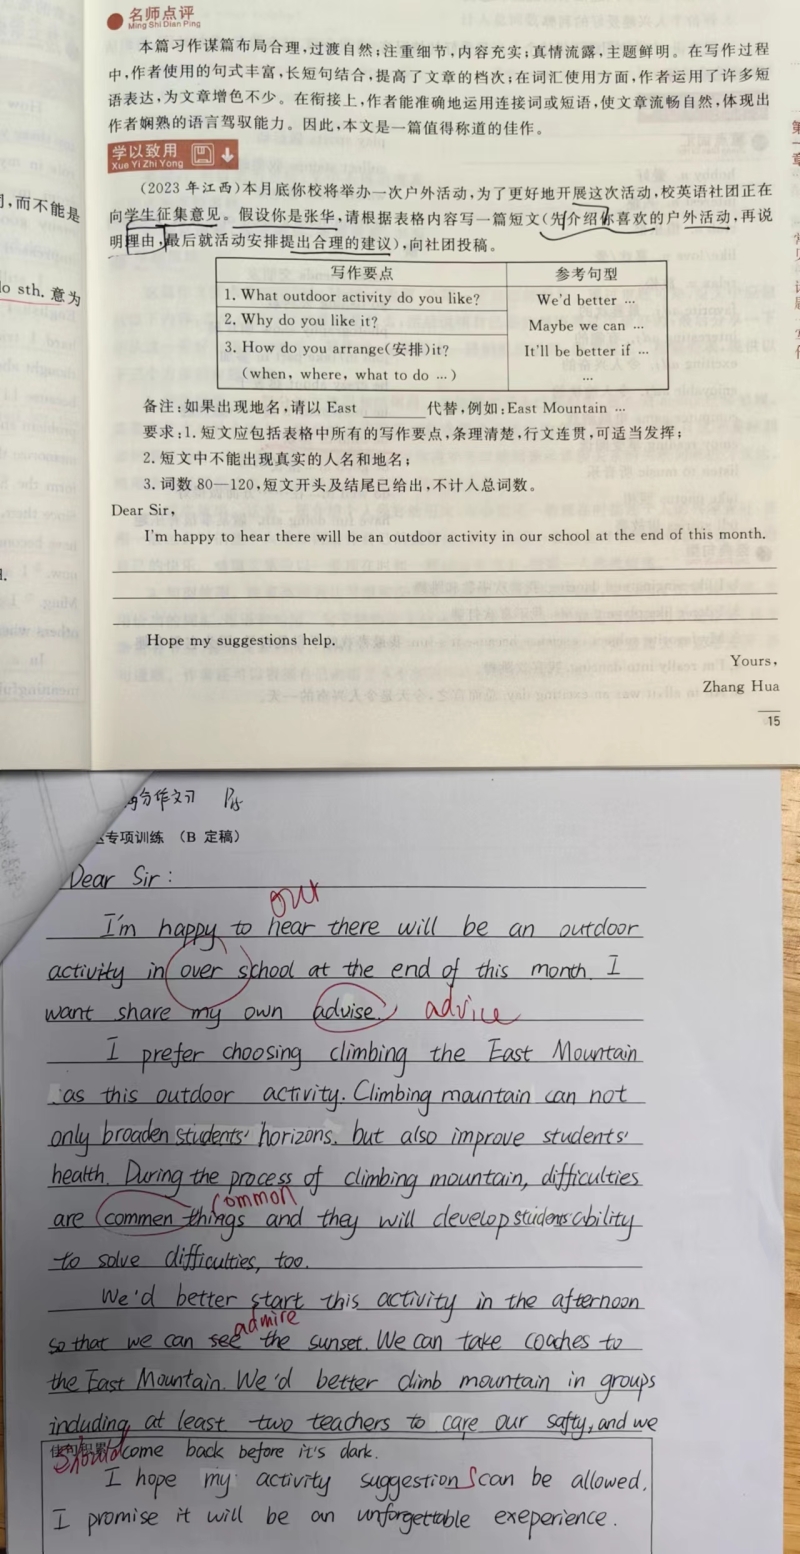 名师点评
Ming Shi Dian Ping
本篇习作谋篇布局合理,过渡自然;注重细节,内容充实;真情流露,主题鲜明。在写作过程
中,作者使用的句式丰富,长短句结合,提高了文章的档次;在词汇使用方面,作者运用了许多短
语表达,为文章增色不少。在衔接上,作者能准确地运用连接词或短语,使文章流畅自然,体现出
作者娴熟的语言驾驭能力。因此,本文是一篇值得称道的佳作。
学以致用
Xue Yi Zhi Yong
(2023年江西)本月底你校将举办一次户外活动,为了更好地开展这次活动,校英语社团正在
向学生征集意见。假设你是张华,请根据表格内容写一篇短文(先介绍你喜欢的户外活动,再说
明理由,最后就活动安排提出合理的建议),向社团投稿。
写作要点 参考句型
1. What outdoor activity do you like? We'd better …
2. Why do you like it? Maybe we can …
3. How do you arrange(安排)it? It'll be better if …
(when, where, what to do …) …
备注:如果出现地名,请以 East ______ 代替,例如:East Mountain …
要求:1. 短文应包括表格中所有的写作要点,条理清楚,行文连贯,可适当发挥;
2. 短文中不能出现真实的人名和地名;
3. 词数 80—120,短文开头及结尾已给出,不计入总词数。
Dear Sir,
I'm happy to hear there will be an outdoor activity in our school at the end of this month.
Hope my suggestions help.
Yours,
Zhang Hua
15
,而不能是
do sth. 意为
第一章
分作文习 P15
专项训练 (B 定稿)
Dear Sir:
our
I'm happy to hear there will be an outdoor
activity in over school at the end of this month. I
want share my own advise. advice
I prefer choosing climbing the East Mountain
as this outdoor activity. Climbing mountain can not
only broaden students' horizons, but also improve students'
health. During the process of climbing mountain, difficulties
common
are commen things and they will develop students ability
to solve difficulties, too.
We'd better start this activity in the afternoon
admire
so that we can see the sunset. We can take coaches to
the East Mountain. We'd better climb mountain in groups
including at least two teachers to care our safty, and we
佳句积累
should come back before it's dark.
I hope my activity suggestions can be allowed.
I promise it will be an unforgettable exeperience.